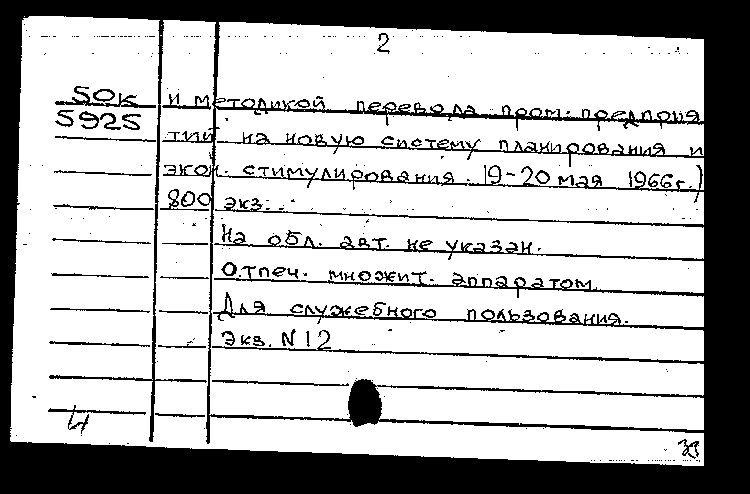 2
50к и методикой перевода пром. предприя
5925
тий на новую систему планирования и
экон. стимулирования. 19-20 мая 1966 г.)
800 экз.
На обл. авт. не указан.
Отпеч. множит. аппаратом.
Для служебного пользования.
Экз. N 12